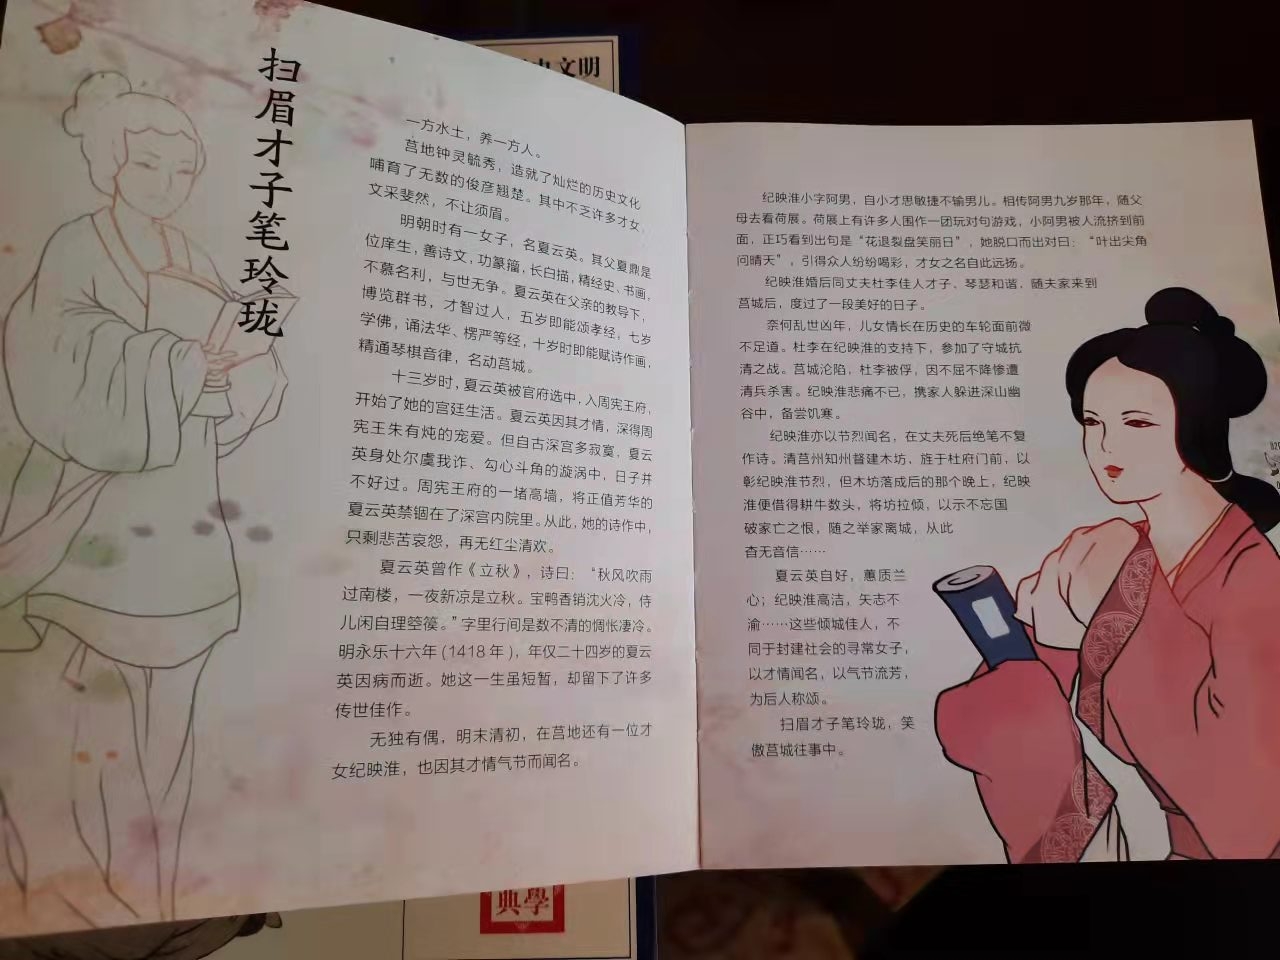 扫眉才子笔玲珑
一方水土，养一方人。
莒地钟灵毓秀，造就了灿烂的历史文化
哺育了无数的俊彦翘楚。其中不乏许多才女，
文采斐然，不让须眉。
明朝时有一女子，名夏云英。其父夏鼎是
位庠生，善诗文，功篆籀，长白描，精经史、书画，
不慕名利，与世无争。夏云英在父亲的教导下，
博览群书，才智过人，五岁即能颂孝经，七岁
学佛，诵法华、楞严等经，十岁时即能赋诗作画，
精通琴棋音律，名动莒城。
十三岁时，夏云英被官府选中，入周宪王府，
开始了她的宫廷生活。夏云英因其才情，深得周
宪王朱有炖的宠爱。但自古深宫多寂寞，夏云
英身处尔虞我诈、勾心斗角的漩涡中，日子并
不好过。周宪王府的一堵高墙，将正值芳华的
夏云英禁锢在了深宫内院里。从此，她的诗作中，
只剩悲苦哀怨，再无红尘清欢。
夏云英曾作《立秋》，诗曰：“秋风吹雨
过南楼，一夜新凉是立秋。宝鸭香销沈火冷，侍
儿闲自理箜篌。”字里行间是数不清的惆怅凄冷。
明永乐十六年(1418年)，年仅二十四岁的夏云
英因病而逝。她这一生虽短暂，却留下了许多
传世佳作。
无独有偶，明末清初，在莒地还有一位才
女纪映淮，也因其才情气节而闻名。
纪映淮小字阿男，自小才思敏捷不输男儿。相传阿男九岁那年，随父
母去看荷展。荷展上有许多人围作一团玩对句游戏，小阿男被人流挤到前
面，正巧看到出句是“花退裂盘笑丽日”，她脱口而出对曰：“叶出尖角
问晴天”，引得众人纷纷喝彩，才女之名自此远扬。
纪映淮婚后同丈夫杜李佳人才子、琴瑟和谐，随夫家来到
莒城后，度过了一段美好的日子。
奈何乱世凶年，儿女情长在历史的车轮面前微
不足道。杜李在纪映淮的支持下，参加了守城抗
清之战。莒城沦陷，杜李被俘，因不屈不降惨遭
清兵杀害。纪映淮悲痛不已，携家人躲进深山幽
谷中，备尝饥寒。
纪映淮亦以节烈闻名，在丈夫死后绝笔不复
作诗。清莒州知州督建木坊，旌于杜府门前，以
彰纪映淮节烈，但木坊落成后的那个晚上，纪映
淮便借得耕牛数头，将坊拉倾，以示不忘国
破家亡之恨，随之举家离城，从此
杳无音信……
夏云英自好，蕙质兰
心；纪映淮高洁，矢志不
渝……这些倾城佳人，不
同于封建社会的寻常女子，
以才情闻名，以气节流芳，
为后人称颂。
扫眉才子笔玲珑，笑
傲莒城往事中。
文明
典學